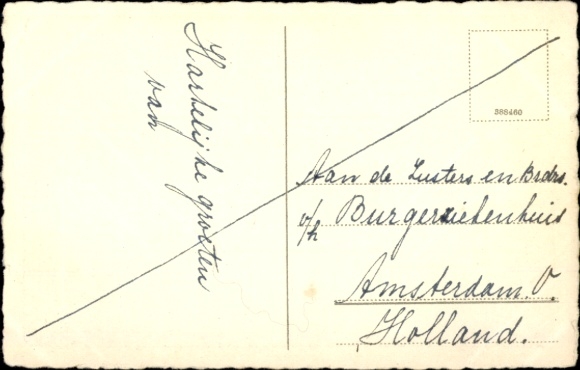 Hartelijke groeten
van
388460
Aan de Zusters en Brdrs.
v/h Burgerziekenhuis
Amsterdam. O.
Holland.